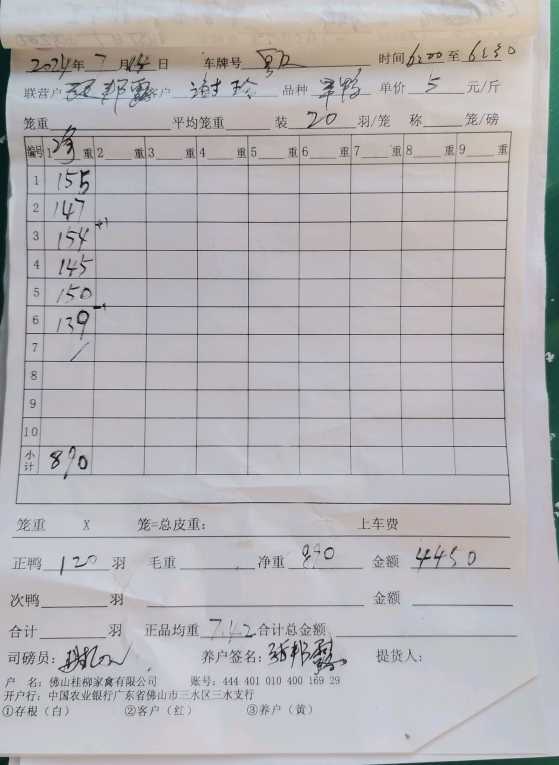 2024年7月14日 车牌号 时间6:00至6:30
联营户 客户 谢玲 品种 单价 5 元/斤
笼重 平均笼重 装 20 羽/笼 称 笼/磅
编号 1 重 2 重 3 重 4 重 5 重 6 重 7 重 8 重 9 重
1 155
2 147
3 154 +1
4 145
5 150
6 139 -1
7 /
8
9
10
小计 890
笼重 X 笼=总皮重: 上车费
正鸭 120 羽 毛重 净重 890 金额 4450
次鸭 羽 金额
合计 羽 正品均重 7.42 合计总金额
司磅员: 养户签名: 提货人:
户 名: 佛山桂柳家禽有限公司 账号: 444 401 010 400 169 29
开户行: 中国农业银行广东省佛山市三水区三水支行
①存根(白) ②客户(红) ③养户(黄)